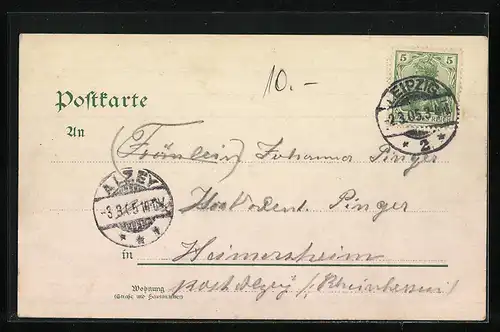 10.-
5 5
LEIPZIG
2.3.05.
2
Postkarte
An
(Fräulein) Johanna Pinger
ALZEY
-3.3.05
Pinger
in Heimersheim
post Alzey (Rheinhessen)
Wohnung
(Straße und Hausnummer)